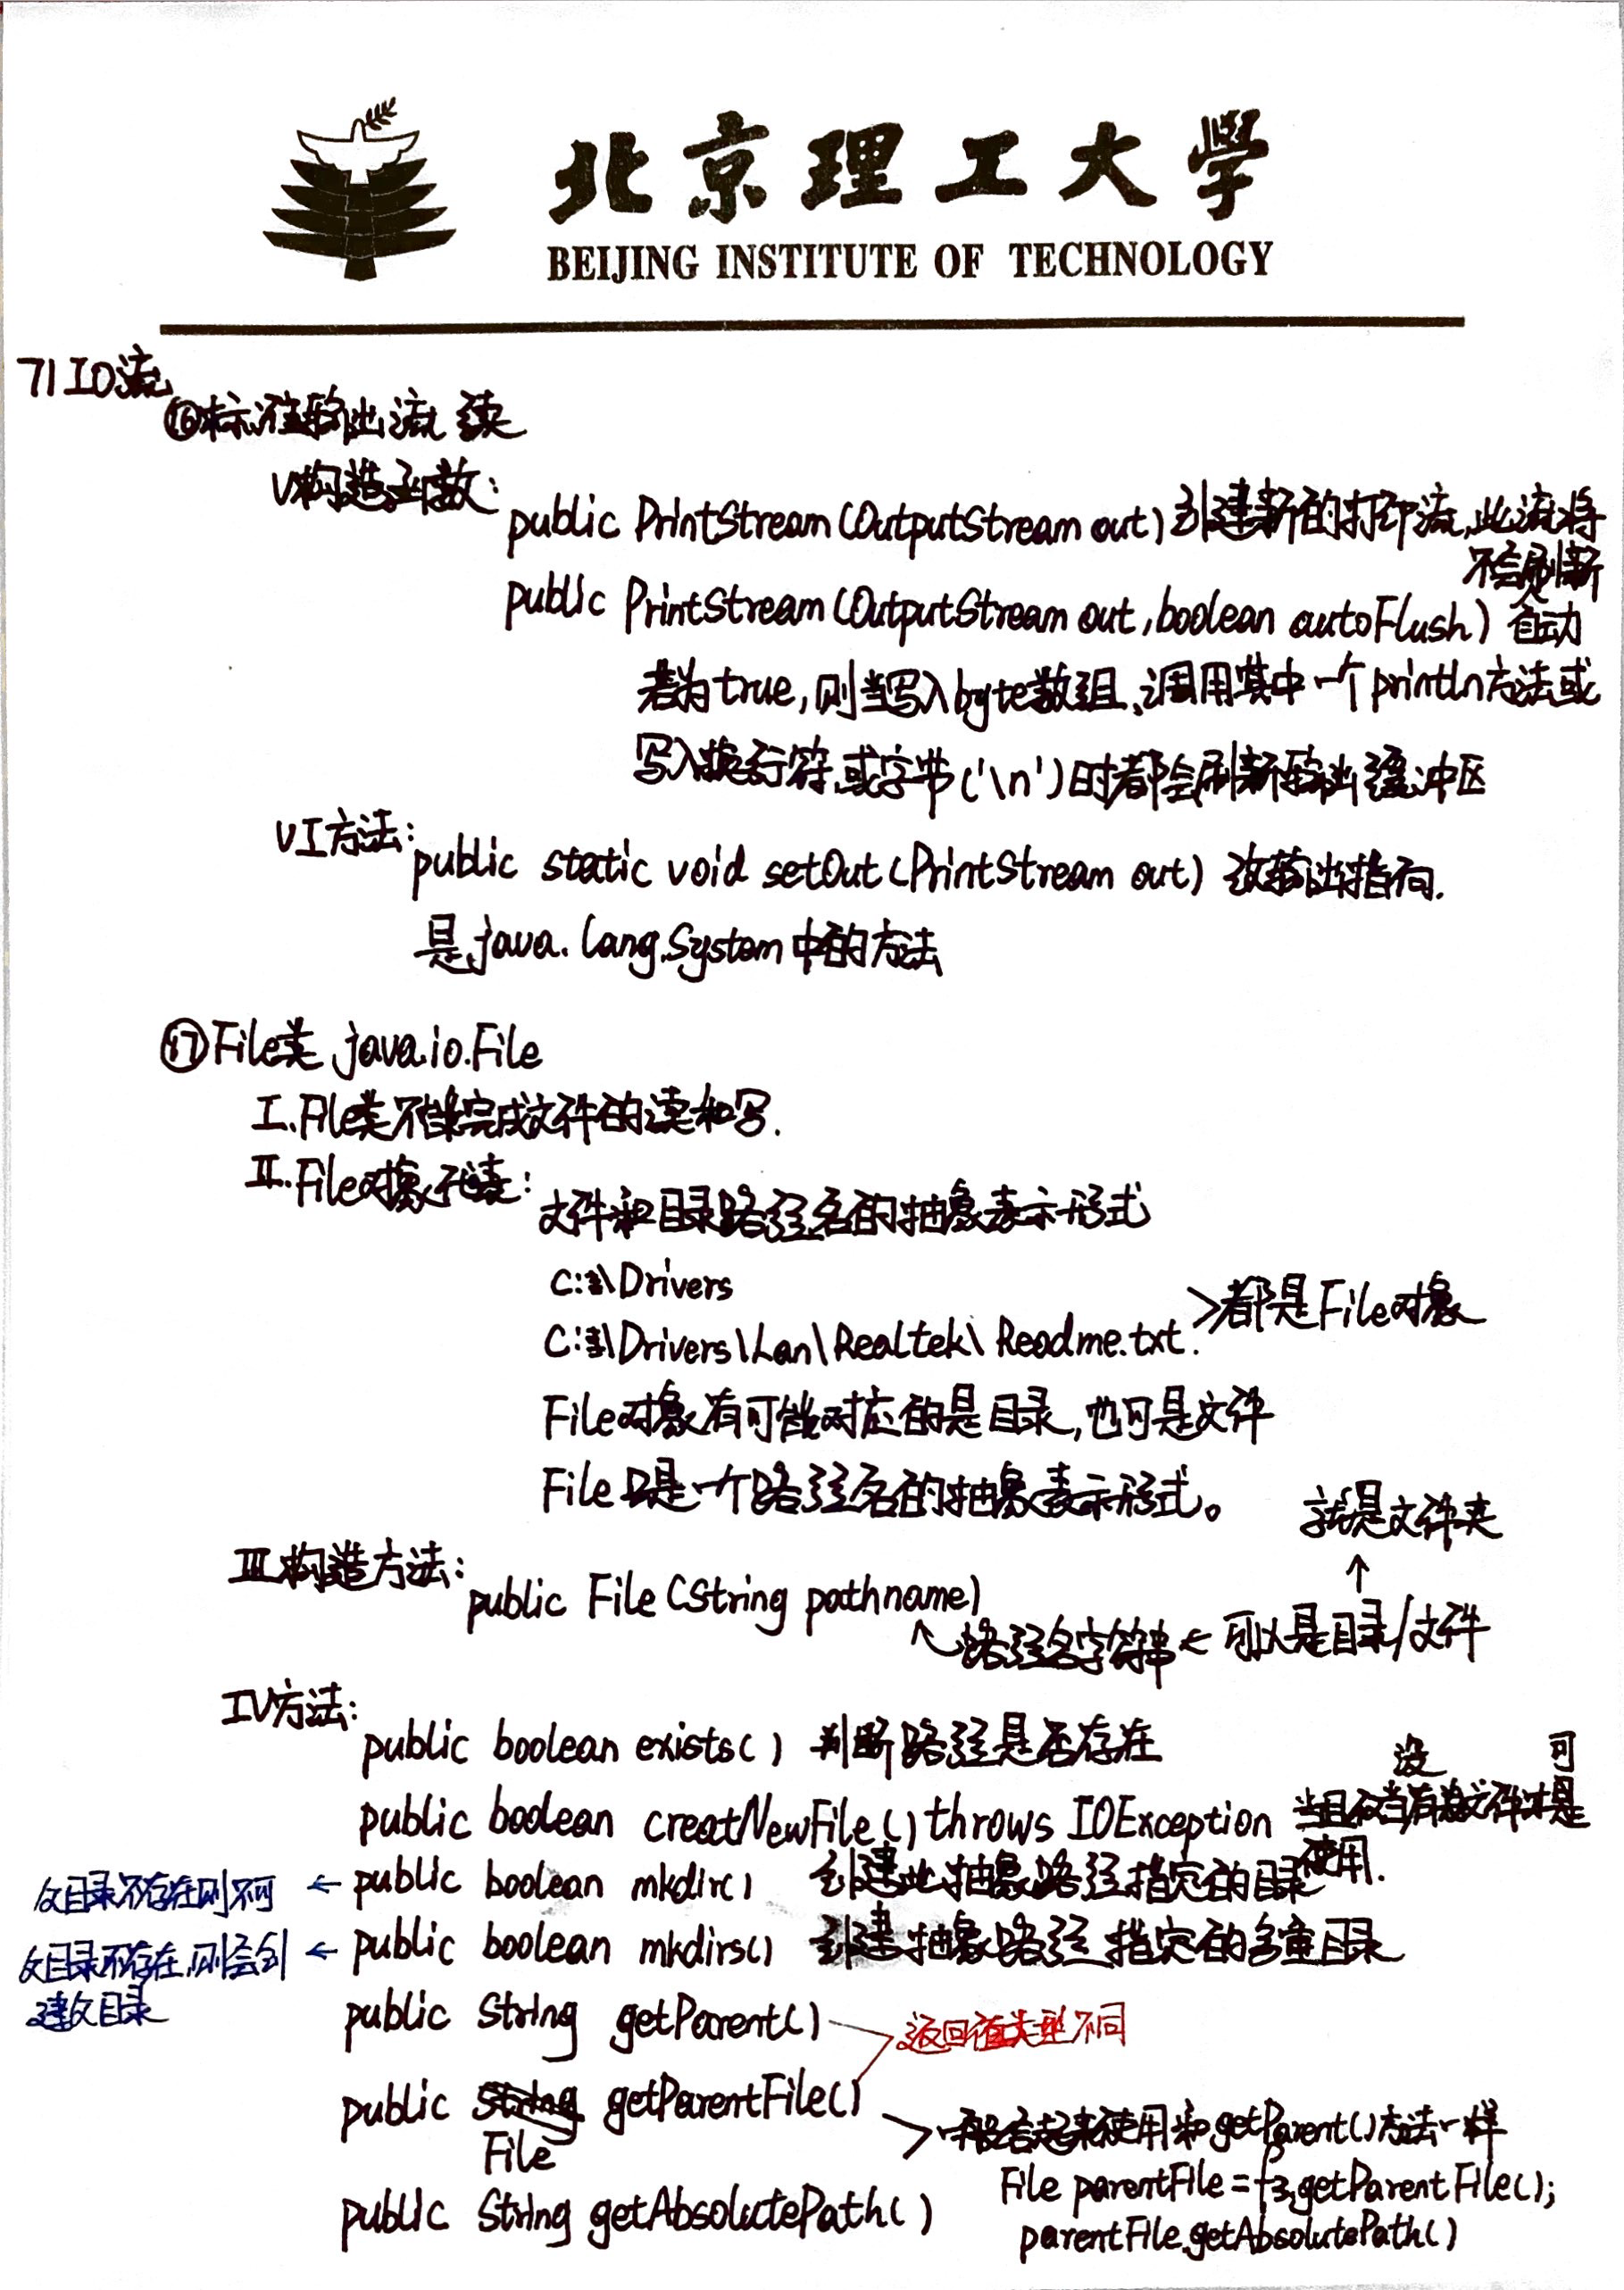 北京理工大学
BEIJING INSTITUTE OF TECHNOLOGY
71 IO流
⑯标准输出流 续
V构造函数:
public PrintStream(OutputStream out) 创建新的打印流,此流将
不会刷新
自动
public PrintStream(OutputStream out, boolean autoFlush)
若为true,则当写入byte数组、调用其中一个println方法或
写入换行符或字节('\n')时都会刷新输出缓冲区
VI方法:
public static void setOut(PrintStream out) 改输出指向.
是java.lang.System中的方法
⑰File类 java.io.File
I.File类不能完成文件的读和写.
II.File对象代表:
文件和目录路径名的抽象表示形式
C:\Drivers
C:\Drivers\Lan\Realtek\Readme.txt.
>都是File对象
File对象有可能对应的是目录,也可是文件
File只是一个路径名的抽象表示形式。
就是文件夹
↑
III构造方法:
public File(String pathname)
↖路径名字符串 ← 可以是目录/文件
IV方法:
public boolean exists() 判断路径是否存在
public boolean creatNewFile() throws IOException 当且仅当没有文件才可
使用.
父目录不存在则不可 ← public boolean mkdir() 创建此抽象路径指定的目录
父目录不存在,则会创 ← public boolean mkdirs() 创建抽象路径指定的多重目录
建父目录
public String getParent()
返回值类型不同
public String getParentFile()
File
>一般合起来使用和getParent()方法一样
File parentFile = f3.getParentFile();
public String getAbsolutePath()
parentFile.getAbsolutePath()